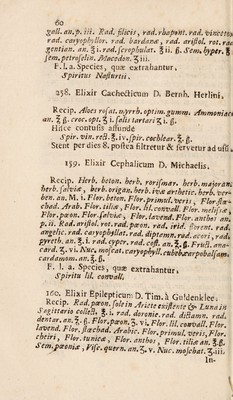 60
gall. an. p. iii. Rad. filicis, rad. rhapont. rad. vincetox
rad. caryophyllor. rad. bardanæ, rad. aristol. rot. ra
gentian. an. ʒ i. rad. scrophular. ʒ ii. ß. Sem. hyper. ʒ
sem. petroselin. Macedon. ʒ iii.
F. l. a. Species, quæ extrahantur.
Spiritus Nasturtii.
238. Elixir Cachecticum D. Bernh. Herlini.
Recip. Aloes rosat. myrrh. optim. gumm. Ammoniac
an. ℥ ß. croc. opt. ʒ i. salis tartari ʒ i. ß.
Hisce contusis affunde
Spir. vin. rect. ℥ iv. spir. cochlear. ℥. ß.
Stent per dies 8. postea filtretur & servetur ad usu
159. Elixir Cephalicum D. Michaelis.
Recip. Herb. beton. herb. rorismar. herb. majoran.
herb. salviæ, herb. origan. herb. ivæ arthetic. herb. ver-
ben. an. M. i. Flor. beton. Flor. primul. veris, Flor. stœ-
chad. Arab. Flor. tiliæ, Flor. lil. convall. Flor. melissæ,
Flor. pæon. Flor. salviæ, Flor. lavend. Flor. anthos an.
p. ii. Rad. aristol. rot. rad. pæon. rad. irid. florent. rad.
angelic. rad. caryophyllat. rad. diptamn. rad. acori, rad.
pyreth. an. ʒ. i. rad. cyper. rad. cost. an. ℥. ß. Fruct. ana-
card. ʒ. vi. Nuc. moscat. caryophyll. cubeb. xarpobalsam.
cardamom. an. ʒ. ß.
F. l. a. Species, quæ extrahantur,
Spiritu lil. convall.
160. Elixir Epilepticum D. Tim. à Guldenklee.
Recip. Rad. pæon. sole in Ariete existente & Luna in
Sagittario collect. ℥. i. rad. doronic. rad. dictamn. rad.
dentar. an. ℥. ß. Flor. pæon. ʒ. vi. Flor. lil. convall. Flor.
lavend. Flor. stæchad. Arabic. Flor. primul. veris, Flor.
cheiri, Flor. tunicæ, Flor. anthos, Flor. tiliæ an. ʒ. ß.
Sem. pæoniæ, Visc. quern. an. ʒ. v. Nuc. moschat. ʒ. iii.
In-